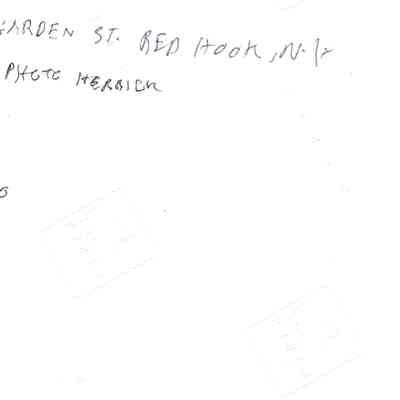 GARDEN ST. RED HOOK, N.Y.
PHOTO HERRICK